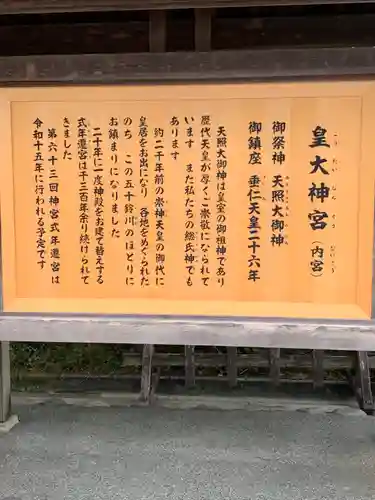 皇大神宮（内宮）
こうたいじんぐう（ないくう）
御祭神 天照大御神
御鎮座 垂仁天皇二十六年
天照大御神は皇室の御祖神であり
歴代天皇が厚くご崇敬になられて
います また私たちの総氏神でも
あります
約二千年前の崇神天皇の御代に
皇居をお出になり 各地をめぐられた
のち この五十鈴川のほとりに
お鎮まりになりました
二十年に一度神殿をお建て替えする
式年遷宮は千三百年余り続けられて
きました
第六十三回神宮式年遷宮は
令和十五年に行われる予定です